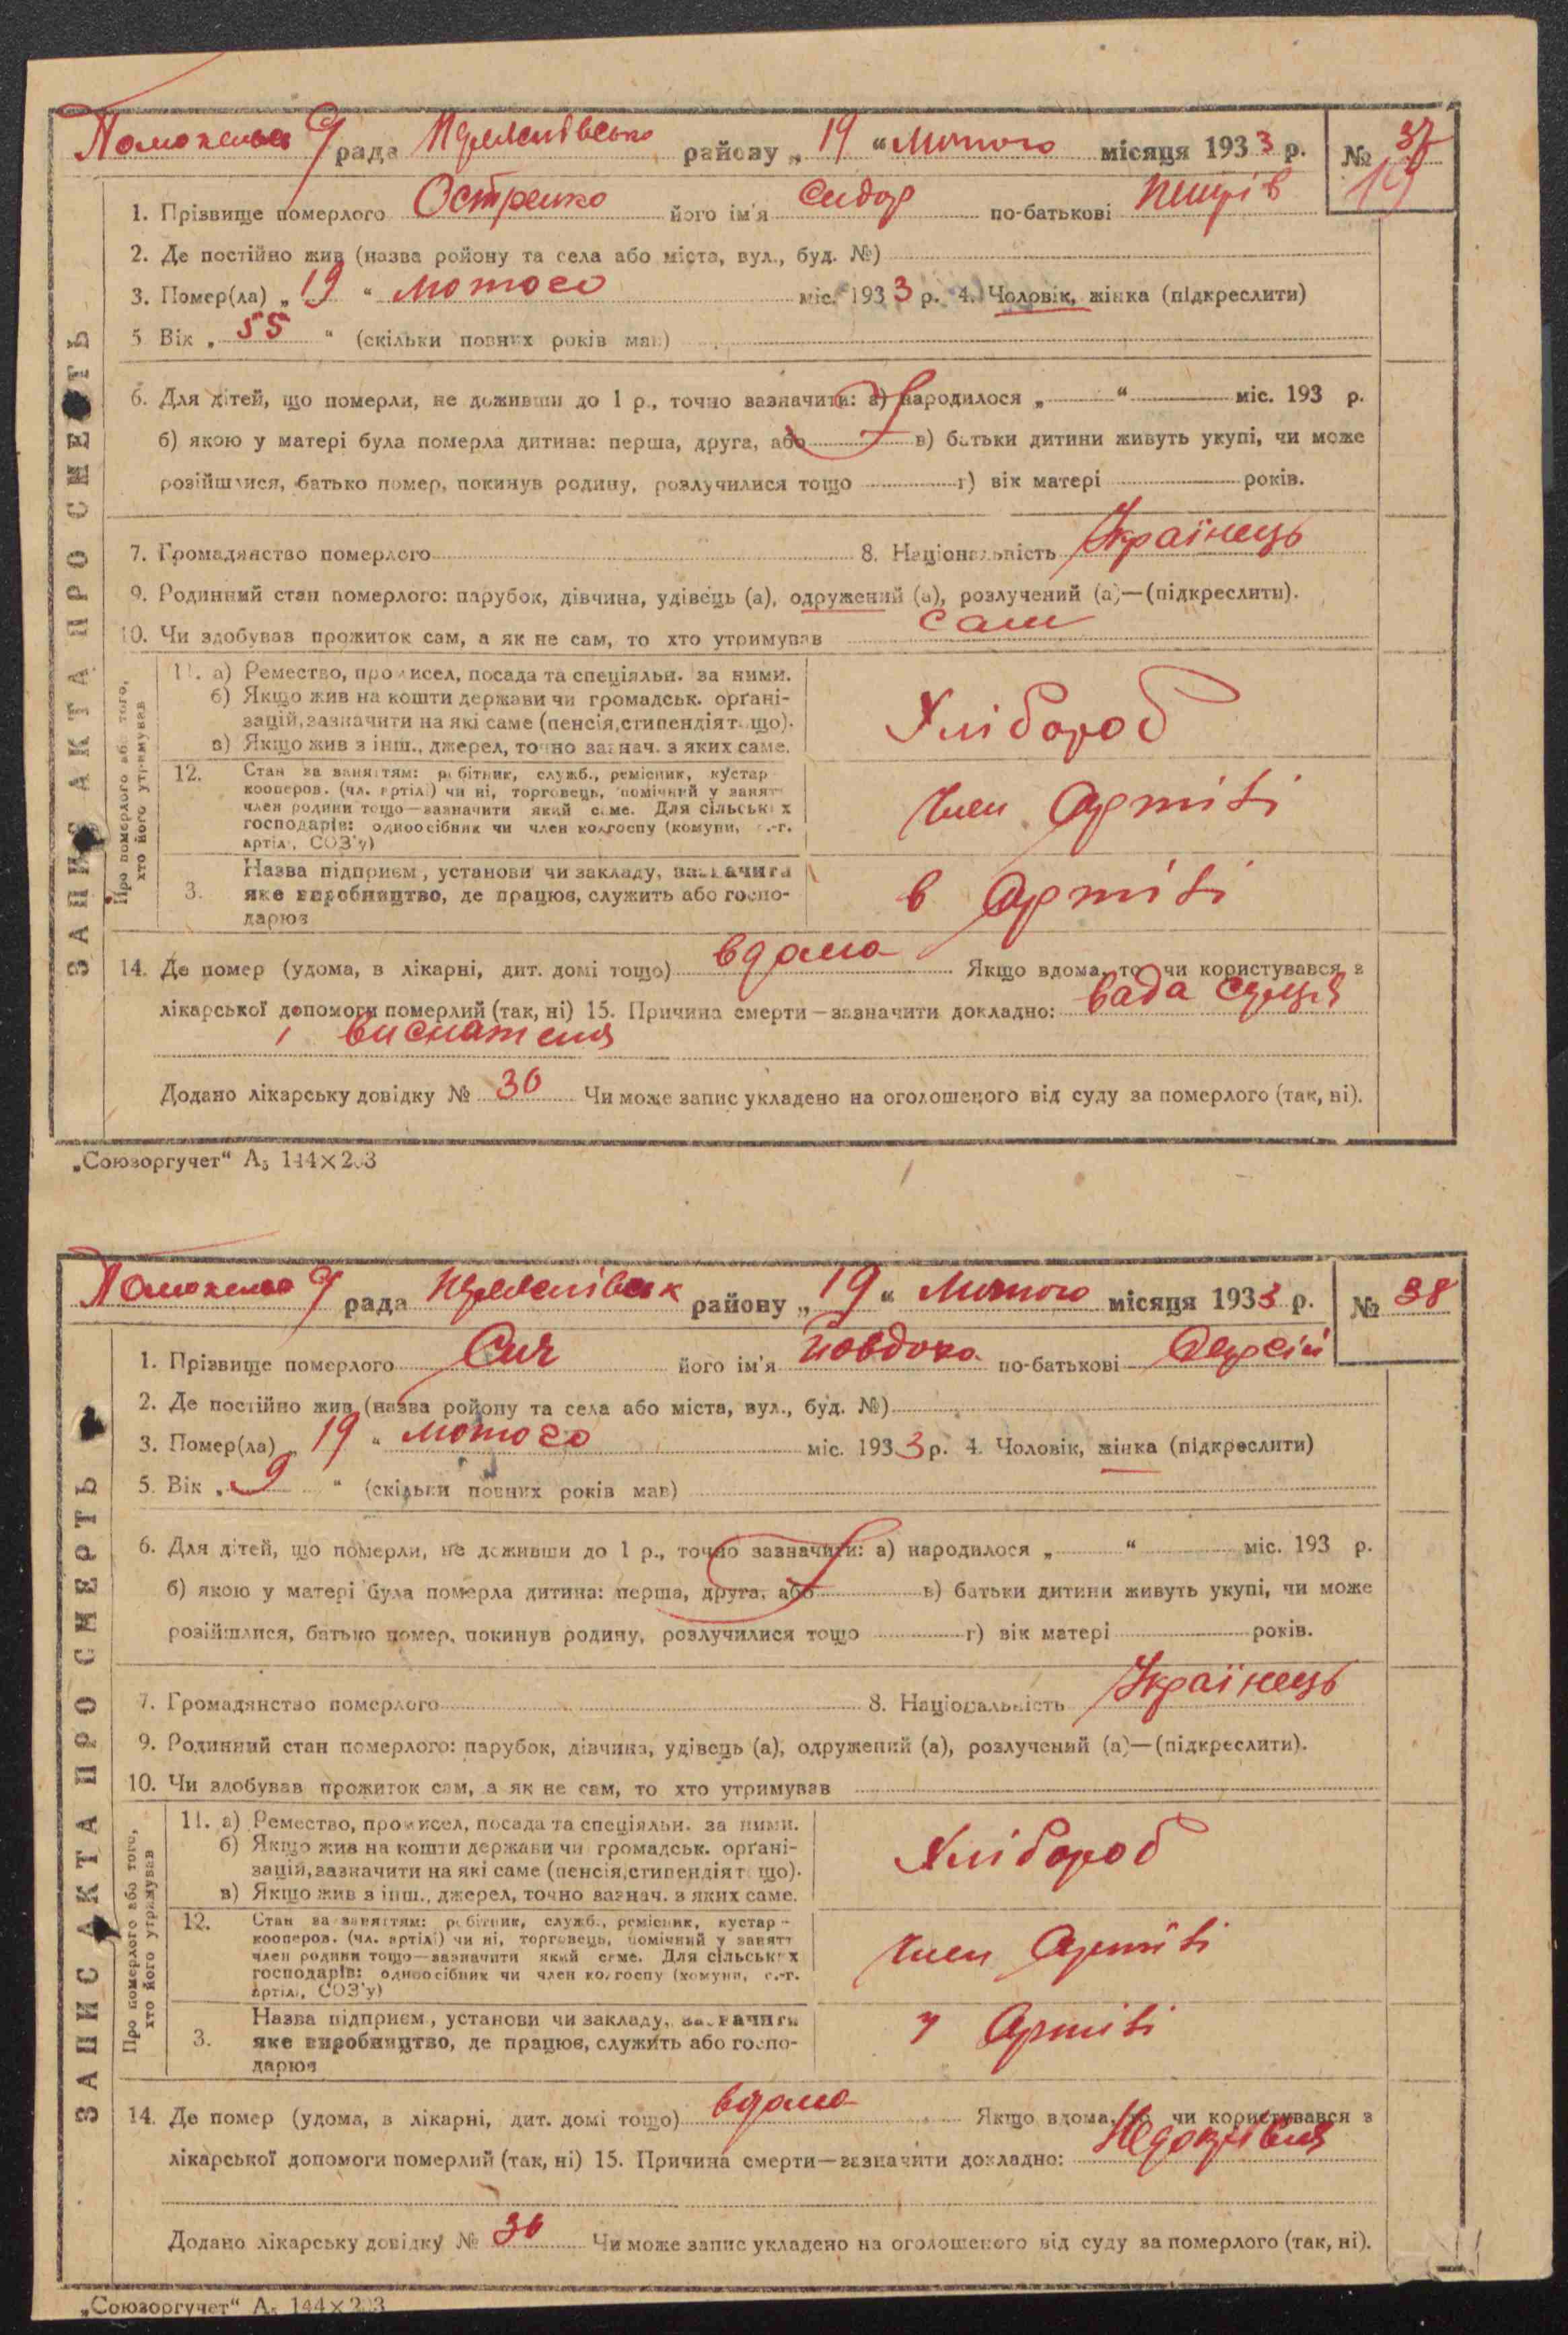 рада районy „ 19 “ Лютого місяця 1933 р. № 37
19
1. Прізвище померлого Остренко його ім'я Сидор по-батькові
2. Де постійно жив (назва ройону та села або міста, вул., буд. №)
3. Помер(ла) „ 19 “ Лютого міс. 1933 р. 4. Чоловік, жінка (підкреслити)
5 Вік „ 55 “ (скільки повних років мав)
6. Для дітей, що померли, не доживши до 1 р., точно вазначити: а) народилося „ “ міс. 193 р.
б) якою у матері була померла дитина: перша, друга, або в) батьки дитини живуть укупі, чи може
розійшлися, батько помер, покинув родину, розлучилися тощо г) вік матері років.
7. Громадянство померлого 8. Національність Українець
9. Родинний стан померлого: парубок, дівчина, удівець (а), одружений (а), розлучений (а)—(підкреслити).
10. Чи здобував прожиток сам, а як не сам, то хто утримував сам
ЗАПИС АКТА ПРО СМЕРТЬ
Про померлого або того,
хто його утримував
11. а) Ремество, промисел, посада та спеціяльн. за ними.
б) Якщо жив на кошти держави чи громадськ. орґані-
зацій, зазначити на які саме (пенсія, стипендія тощо).
в) Якщо жив з інш., джерел, точно зазнач. з яких саме.
Хлібороб
12. Стан за заняттям: робітник, служб., ремісник, кустар
кооперов. (чл. артілі) чи ні, торговець, помічний у занятт
член родини тощо—зазначити який саме. Для сільських
господарів: одноосібник чи член колгоспу (комуни, с.-г.
артілі, СОЗ'у)
член Артілі
3. Назва підприєм., установи чи закладу, зазначити
яке виробництво, де працює, служить або госпо-
дарює
в Артілі
14. Де помер (удома, в лікарні, дит. домі тощо) вдома Якщо вдома, то чи користувався з
лікарської допомоги померлий (так, ні) 15. Причина смерти—зазначити докладно: вада серця
і виснаження
Додано лікарську довідку № 30 Чи може запис укладено на оголошеного від суду за померлого (так, ні).
„Союзоргучет“ А₅ 144×203
рада районy „ 19 “ Лютого місяця 1933 р. № 38
1. Прізвище померлого Сич його ім'я Йовдоха по-батькові
2. Де постійно жив (назва ройону та села або міста, вул., буд. №)
3. Помер(ла) „ 19 “ Лютого міс. 1933 р. 4. Чоловік, жінка (підкреслити)
5. Вік „ 9 “ (скільки повних років мав)
6. Для дітей, що померли, не доживши до 1 р., точно зазначити: а) народилося „ “ міс. 193 р.
б) якою у матері була померла дитина: перша, друга, або в) батьки дитини живуть укупі, чи може
розійшлися, батько помер, покинув родину, розлучилися тощо г) вік матері років.
7. Громадянство померлого 8. Національність Українець
9. Родинний стан померлого: парубок, дівчина, удівець (а), одружений (а), розлучений (а)—(підкреслити).
10. Чи здобував прожиток сам, а як не сам, то хто утримував
ЗАПИС АКТА ПРО СМЕРТЬ
Про померлого або того,
хто його утримував
11. а) Ремество, промисел, посада та спеціяльн. за ними.
б) Якщо жив на кошти держави чи громадськ. орґані-
зацій, зазначити на які саме (пенсія, стипендія тощо).
в) Якщо жив з інш., джерел, точно зазнач. з яких саме.
Хлібороб
12. Стан за заняттям: робітник, служб., ремісник, кустар-
кооперов. (чл. артілі) чи ні, торговець, помічний у занятт
член родини тощо—зазначити який саме. Для сільських
господарів: одноосібник чи член колгоспу (комуни, с.-г.
артілі, СОЗ'у)
член Артілі
3. Назва підприєм., установи чи закладу, зазначити
яке виробництво, де працює, служить або госпо-
дарює
у Артілі
14. Де помер (удома, в лікарні, дит. домі тощо) вдома Якщо вдома, то чи користувався з
лікарської допомоги померлий (так, ні) 15. Причина смерти—зазначити докладно: Недокрівля
Додано лікарську довідку № 30 Чи може запис укладено на оголошеного від суду за померлого (так, ні).
„Союзоргучет“ А₅ 144×203